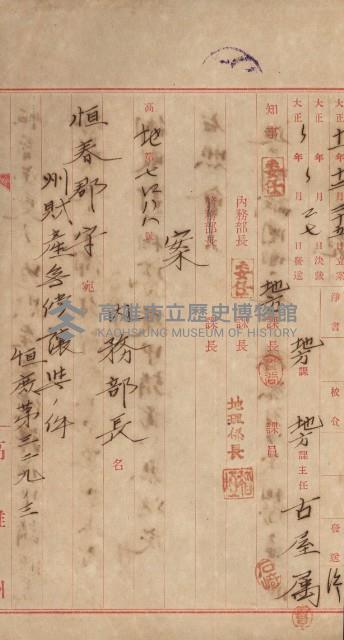 大正十一年十一月二十五日立案
大正 年 月 日決裁 淨書 校合 發送
大正 年 月二七日發送 地方課 地方課主任 古屋属
知事 委任 地方課長 課員
內務部長 委任 課長 地理係長
警務部長 課長
案
高地第七〇八八號
內務部長名
恒春郡守宛
州財產無償讓與ノ件
恒庶第三二九三
高雄州
高雄市立歷史博物館
KAOHSIUNG MUSEUM OF HISTORY